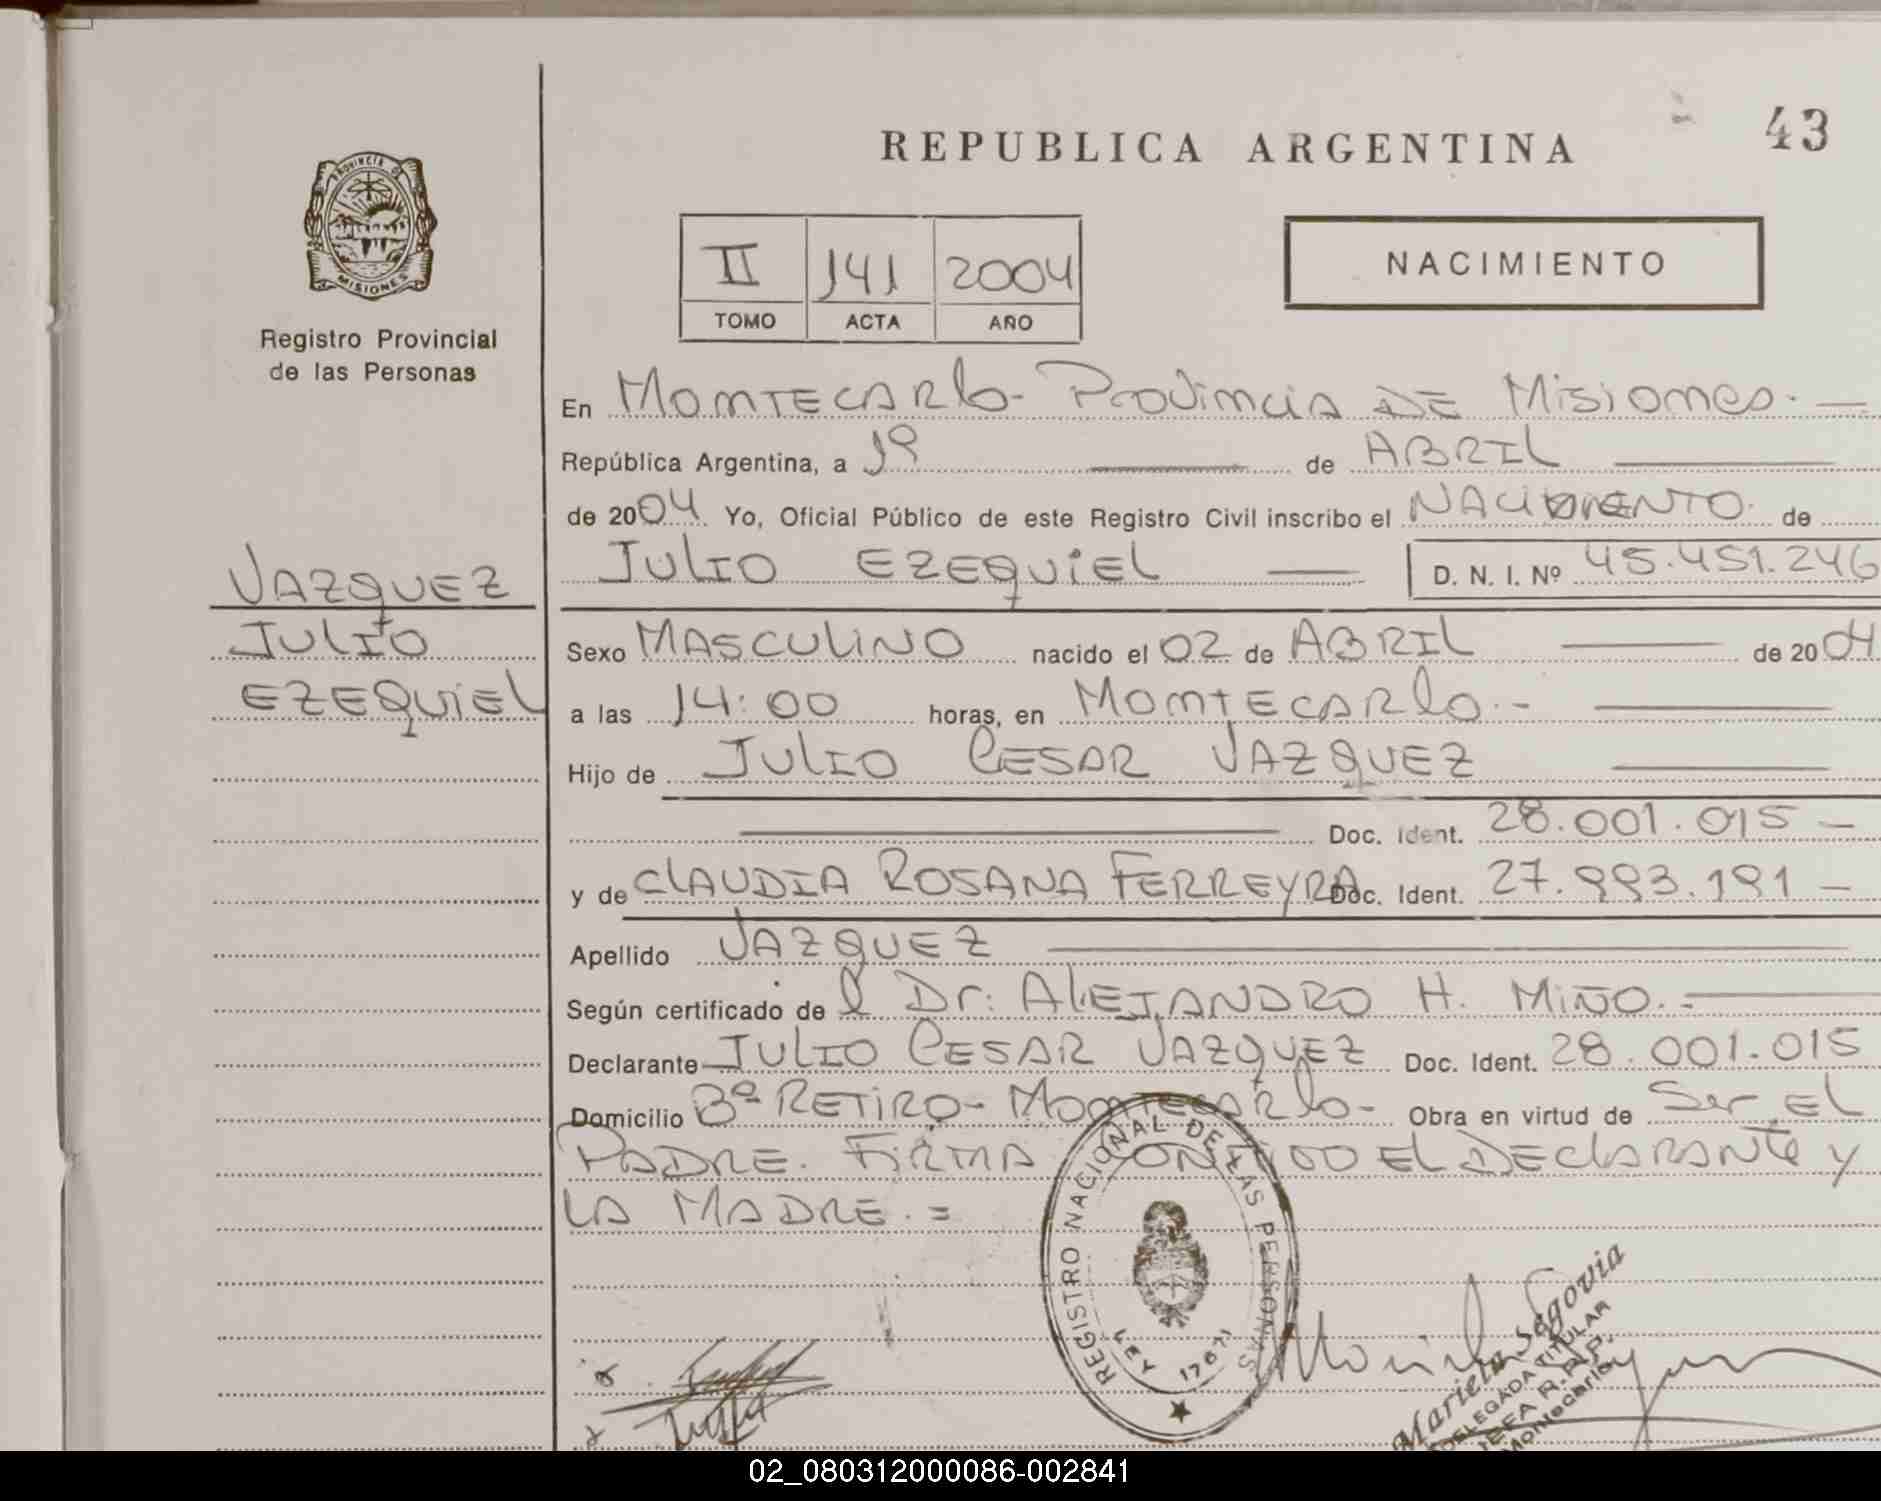 43
REPUBLICA ARGENTINA
PROVINCIA DE
MISIONES
Registro Provincial
de las Personas
NACIMIENTO
II 141 2004
TOMO ACTA AÑO
En MONTECARLO- PROVINCIA DE MISIONES.-
República Argentina, a 1º de ABRIL
de 2004 Yo, Oficial Público de este Registro Civil inscribo el NACIMIENTO de
JULIO EZEQUIEL D. N. I. Nº 45.451.246
VAZQUEZ
JULIO
EZEQUIEL
Sexo MASCULINO nacido el 02 de ABRIL de 2004
a las 14:00 horas, en MONTECARLO.-
Hijo de JULIO CESAR VAZQUEZ
Doc. Ident. 28.001.015 -
y de CLAUDIA ROSANA FERREYRA Doc. Ident. 27.993.191 -
Apellido VAZQUEZ
Según certificado de l Dr: ALEJANDRO H. MIÑO.=
Declarante JULIO CESAR VAZQUEZ Doc. Ident. 28.001.015
Domicilio Bº RETIRO- MONTECARLO- Obra en virtud de Ser EL
PADRE. FIRMA CONMIGO EL DECLARANTE y
LA MADRE.=
REGISTRO NACIONAL DE LAS PERSONAS
LEY 17671
Mariela Segovia
DELEGADA TITULAR
JEFA R.R.P.
Montecarlo
02_080312000086-002841